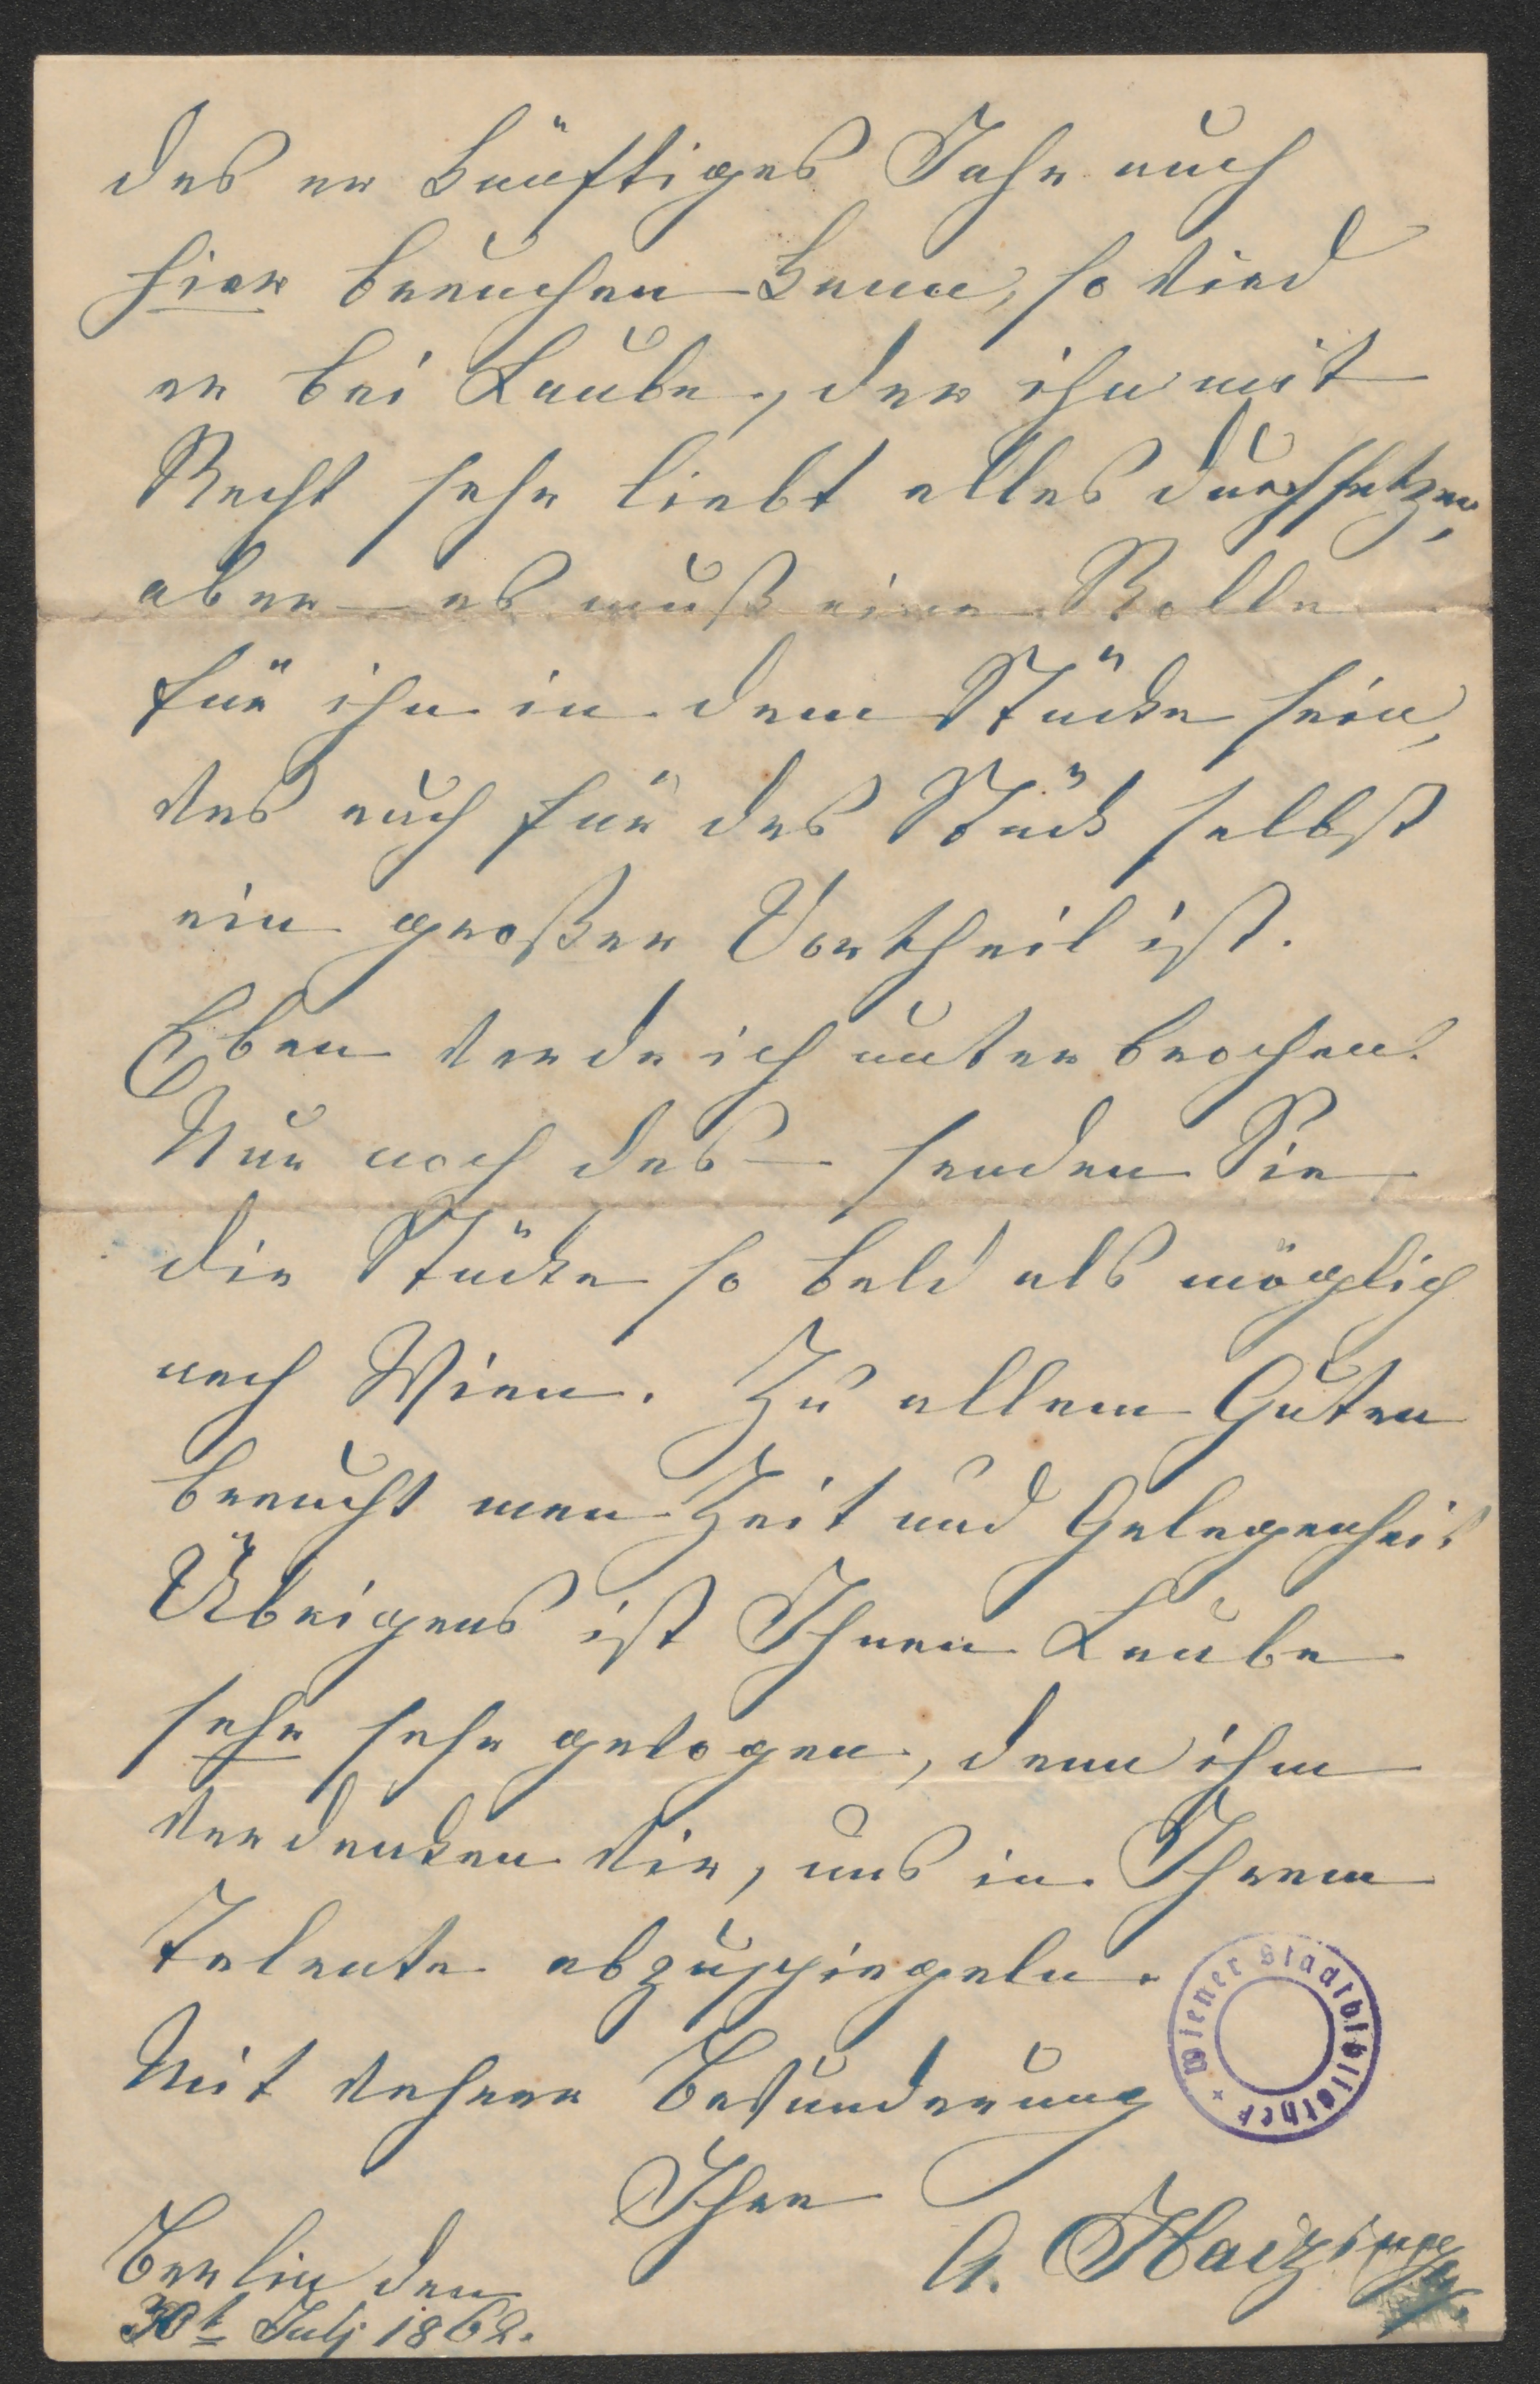 das er künftiges Jahr auch
hier brauchen kann, so wird
er bei Laube, der ihn mit
Recht sehr liebt alles durchsetzen,
aber — es muß eine Rolle
für ihn in dem Stücke sein,
was auch für das Stück selbst
ein großer Vortheil ist.
Eben werde ich unterbrochen.
Nur noch das — senden Sie
die Stücke so bald als möglich
nach Wien. Zu allem Guten
braucht man Zeit und Gelegenheit
Übrigens ist Ihnen Laube
sehr sehr gewogen, denn ihm
verdanken wir, uns in Ihrem
Talente abzuspiegeln.
Mit wahrer Bewunderung
Ihre
A. Haizinger
Berlin den
30t July 1862.
Wiener Stadtbibliothek